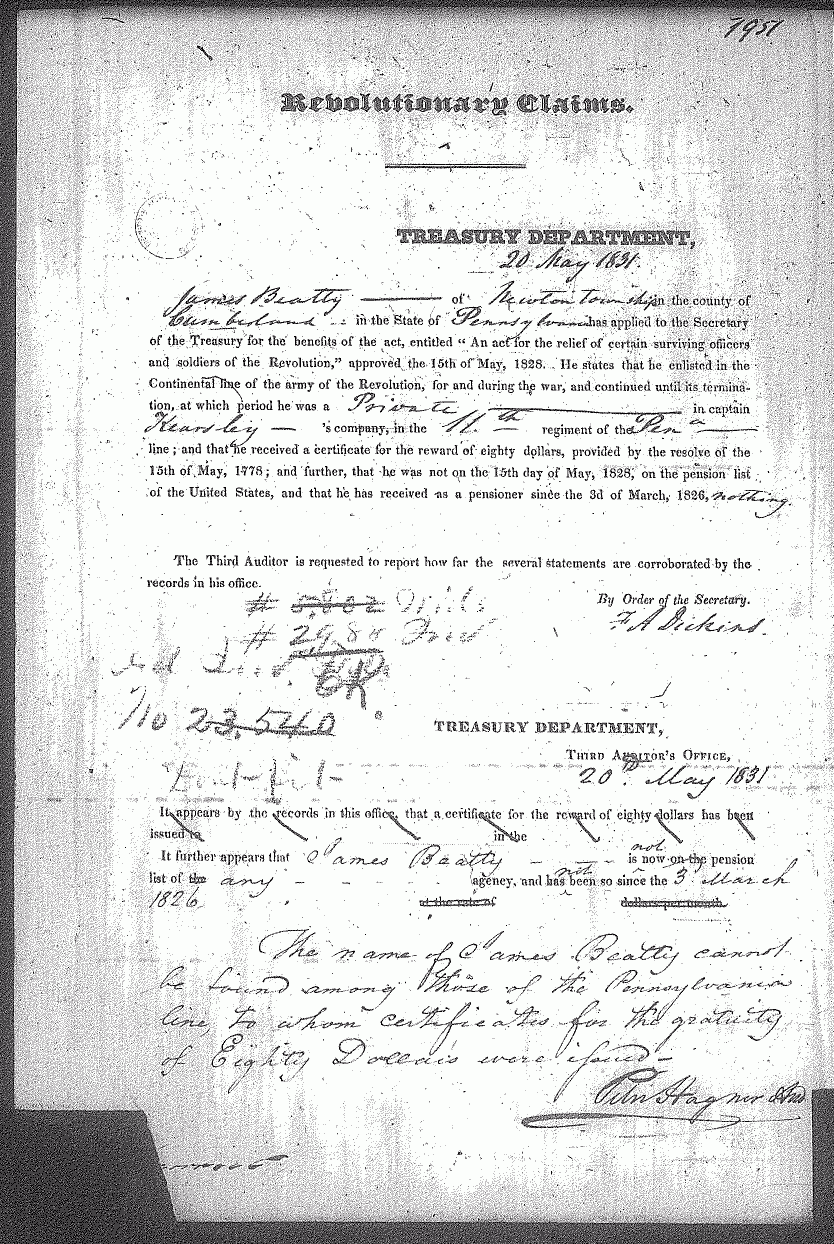 1951
Revolutionary Claims.
TREASURY DEPARTMENT,
20 May 1831.
James Beatty of Newton township in the county of
Cumberland in the State of Pennsylvania has applied to the Secretary
of the Treasury for the benefits of the act, entitled “ An act for the relief of certain surviving officers
and soldiers of the Revolution,” approved the 15th of May, 1828. He states that he enlisted in the
Continental line of the army of the Revolution, for and during the war, and continued until its termina-
tion, at which period he was a Private in captain
Kearsley 's company, in the 11th regiment of the Pena
line ; and that he received a certificate for the reward of eighty dollars, provided by the resolve of the
15th of May, 1778; and further, that he was not on the 15th day of May, 1828, on the pension list
of the United States, and that he has received as a pensioner since the 3d of March, 1826, nothing.
The Third Auditor is requested to report how far the several statements are corroborated by the
records in his office.
By Order of the Secretary.
F A Dickins.
No 23.540
TREASURY DEPARTMENT,
THIRD AUDITOR'S OFFICE,
20th May 1831
It appears by the records in this office, that a certificate for the reward of eighty dollars has been
issued to in the
It further appears that James Beatty is now not on the pension
list of the any agency, and has not been so since the 3 March
1826 at the rate of dollars per month
The name of James Beatty cannot
be found among those of the Pennsylvania
line, to whom certificates for the gratuity
of Eighty Dollars were issued-
Peter Hagner Aud